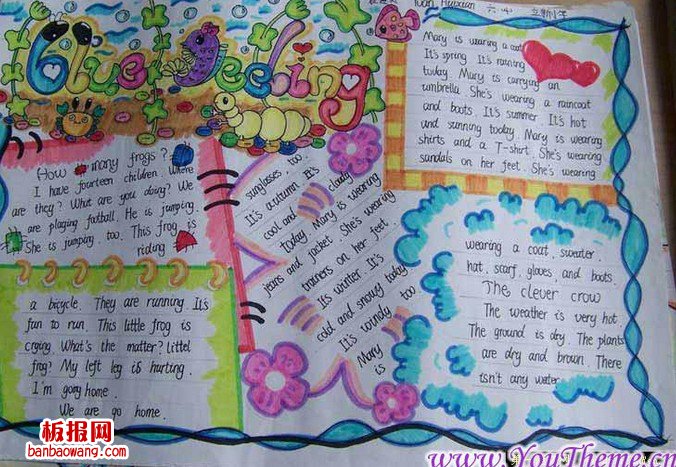 Blue Feeling
Yuan Huixian 六
Mary is wearing a coat
It's spring It's raining
today. Mary is carrying an
umbrella. She's wearing a raincoat
and boots. It's summer. It's hot
and sunning today. Mary is wearing
shirts and a T-shirt. She's wearing
sandals on her feet. She's wearing
sunglasses, too.
It's autumn. It's
cool and cloudy
today. Mary is wearing
jeans and jacket. She's wearing
trainers on her feet.
It's winter. It's
cold and snowy today
It's windy too
Mary
is
wearing a coat, sweater,
hat, scarf, gloves, and boots.
The clever crow
The weather is very hot.
The ground is dry. The plants
are dry and brown. There
isn't any water.
How many frogs?
I have fourteen children. Where
are they? What are you doing? We
are playing football. He is jumping.
She is jumping, too. This frog is
riding
a bicycle. They are running It's
fun to run. This little frog is
crying. What's the matter? Littel
frog? My left leg is hurting.
I'm gong home.
We are go home.
板报网
banbaowang.com
www.YouTheme.cn